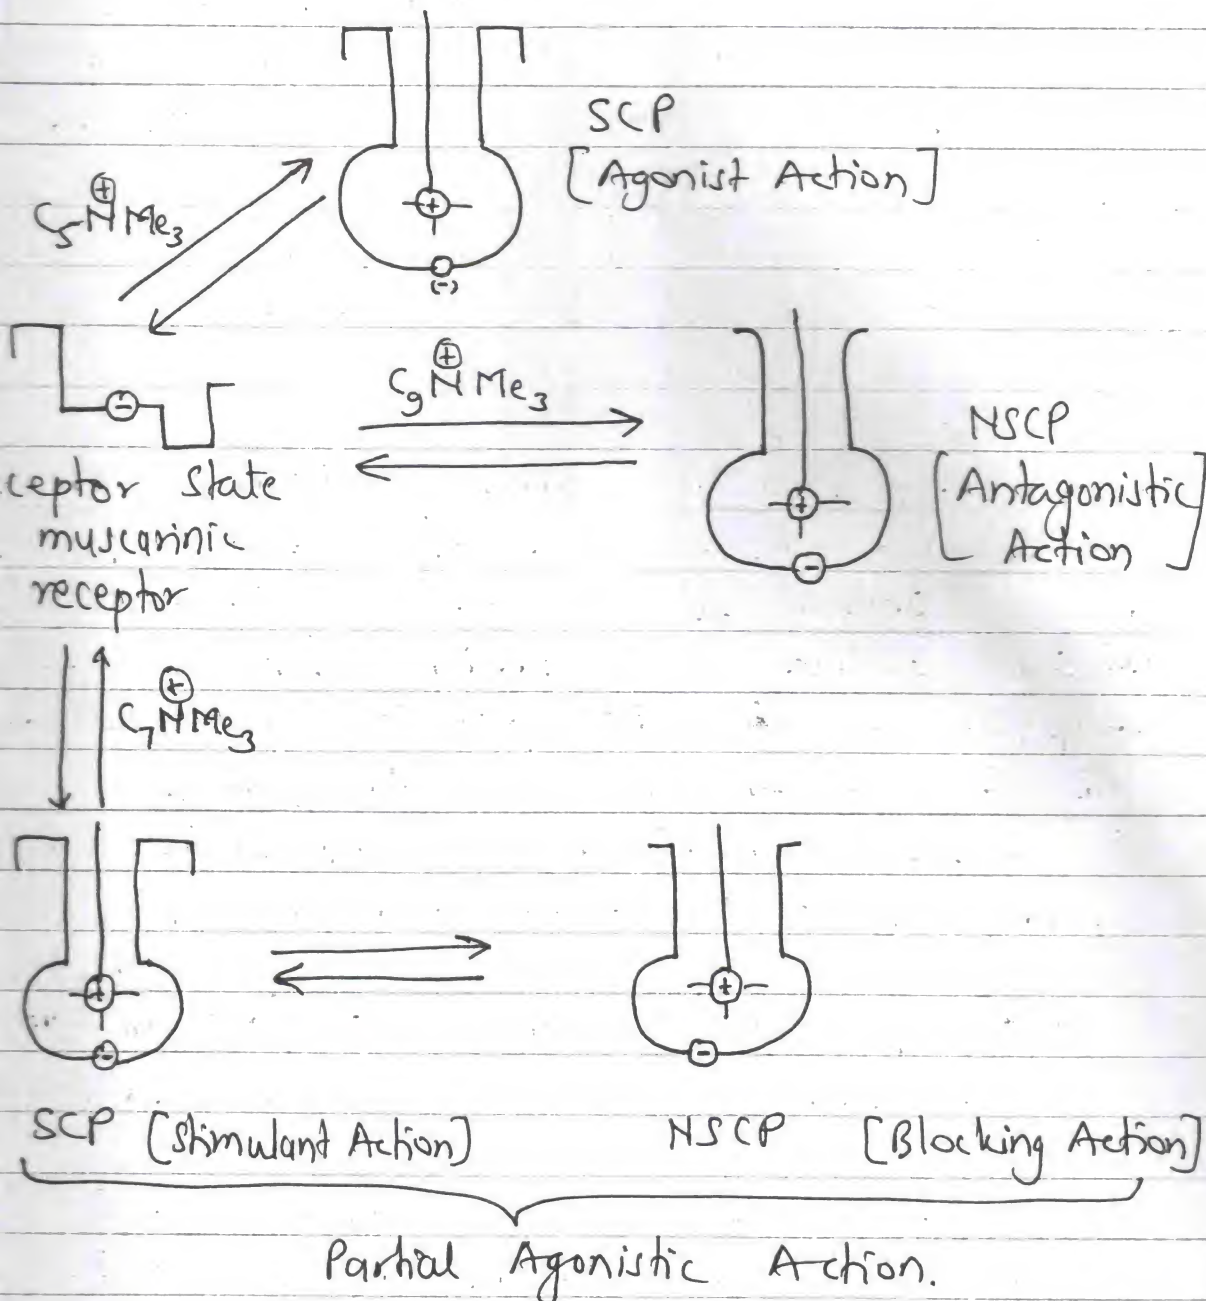 SCP
[Agonist Action]
C5 N⊕ Me3
(-)
C9 N⊕ Me3
NSCP
[Antagonistic
Action]
ceptor State
muscarinic
receptor
C7 N⊕ Me3
SCP [Stimulant Action]
NSCP [Blocking Action]
Partial Agonistic Action.